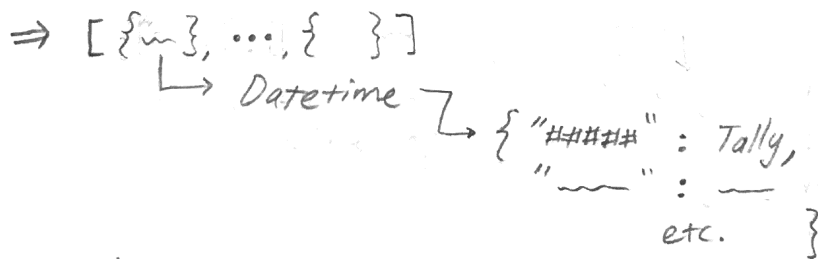 ⇒ [{~}, ..., { }]
Datetime
{"#####" : Tally,
"~" : —
etc. }